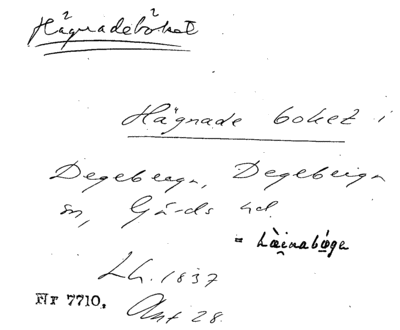 Hägnadeböket
Hägnade boket i
Degeberga, Degeberga
sn, Gärds hd.
=
Lh. 1837
Nr 7710. Akt 28.